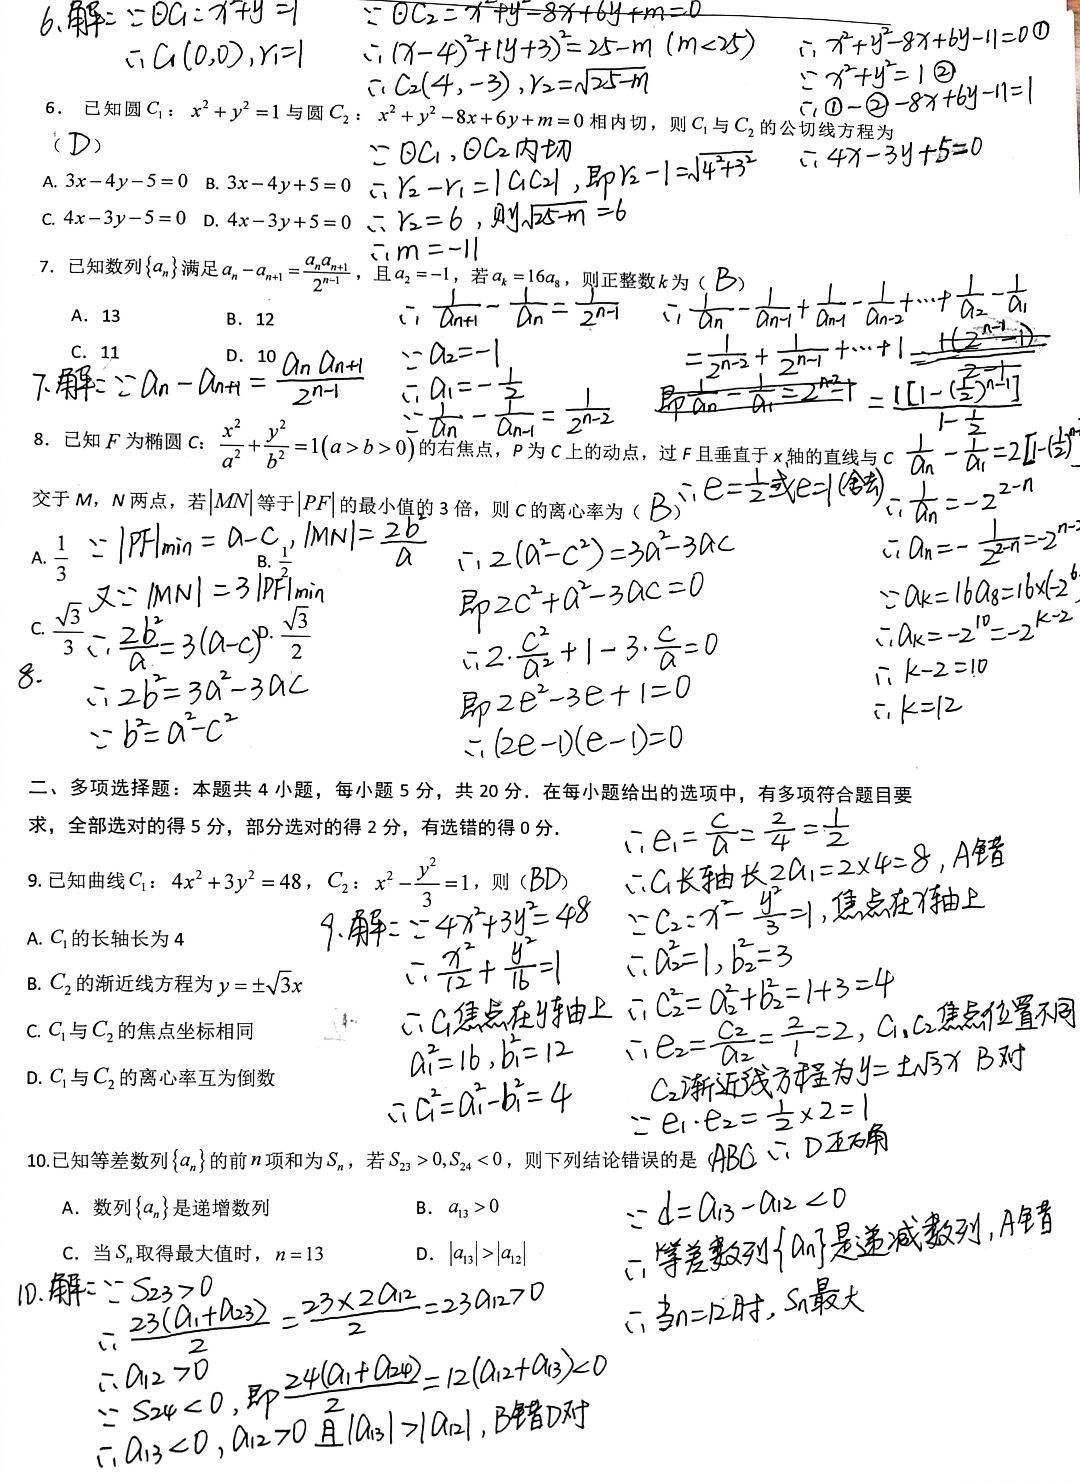 6.解:∵⊙C₁: x²+y²=1
∴C₁(0,0), r₁=1
∵⊙C₂= x²+y²-8x+6y+m=0
∴(x-4)²+(y+3)²=25-m (m<25)
∴C₂(4,-3), r₂=√25-m
∴x²+y²-8x+6y-11=0①
∵x²+y²=1②
∴①-②-8x+6y-11=1
∴4x-3y+5=0
6. 已知圆C₁: x²+y²=1与圆C₂: x²+y²-8x+6y+m=0相内切,则C₁与C₂的公切线方程为
(D)
A. 3x-4y-5=0 B. 3x-4y+5=0
C. 4x-3y-5=0 D. 4x-3y+5=0
∵⊙C₁,⊙C₂内切
∴r₂-r₁=|C₁C₂|,即r₂-1=√4²+3²
∴r₂=6,则√25-m=6
∴m=-11
7. 已知数列{aₙ}满足aₙ-aₙ₊₁=aₙaₙ₊₁/2ⁿ⁻¹,且a₂=-1,若aₖ=16a₈,则正整数k为(B)
A. 13 B. 12
C. 11 D. 10
7.解:∵aₙ-aₙ₊₁=aₙaₙ₊₁/2ⁿ⁻¹
∴1/aₙ₊₁-1/aₙ=1/2ⁿ⁻¹
∵a₂=-1
∴a₁=-1/2
∵1/aₙ-1/aₙ₋₁=1/2ⁿ⁻²
∴1/aₙ-1/aₙ₋₁+1/aₙ₋₁-1/aₙ₋₂+…+1/a₂-1/a₁
=1/2ⁿ⁻²+1/2ⁿ⁻¹+…+1
=1[1-(1/2)ⁿ⁻¹]/1-1/2
1/aₙ-1/a₁=2[1-(1/2)ⁿ⁻
∴1/aₙ=-2²⁻ⁿ
∴aₙ=-1/2²⁻ⁿ=-2ⁿ⁻²
∵aₖ=16a₈=16×(-2⁶)
∴aₖ=-2¹⁰=-2ᵏ⁻²
∴k-2=10
∴k=12
8. 已知F为椭圆C: x²/a²+y²/b²=1(a>b>0)的右焦点,P为C上的动点,过F且垂直于x轴的直线与C
交于M,N两点,若|MN|等于|PF|的最小值的3倍,则C的离心率为(B)
A. 1/3 B. 1/2
C. √3/3 D. √3/2
8.
∵|PF|min=a-c,|MN|=2b²/a
又∵|MN|=3|PF|min
∴2b²/a=3(a-c)
∴2b²=3a²-3ac
∵b²=a²-c²
∴2(a²-c²)=3a²-3ac
即2c²+a²-3ac=0
∴2·c²/a²+1-3·c/a=0
即2e²-3e+1=0
∴(2e-1)(e-1)=0
∴e=1/2或e=1(舍去)
二、多项选择题:本题共4小题,每小题5分,共20分.在每小题给出的选项中,有多项符合题目要
求,全部选对的得5分,部分选对的得2分,有选错的得0分.
9.已知曲线C₁: 4x²+3y²=48, C₂: x²-y²/3=1,则(BD)
A. C₁的长轴长为4
B. C₂的渐近线方程为y=±√3x
C. C₁与C₂的焦点坐标相同
D. C₁与C₂的离心率互为倒数
9.解:∵4x²+3y²=48
∴x²/12+y²/16=1
∴C₁焦点在y轴由上
a₁²=16,b₁²=12
∴c₁²=a₁²-b₁²=4
∴e₁=c/a=2/4=1/2
∴C₁长轴长2a₁=2×4=8,A错
∵C₂=x²-y²/3=1,焦点在x轴上
∴a₂²=1,b₂²=3
∴c₂²=a₂²+b₂²=1+3=4
∴e₂=c₂/a₂=2/1=2,C₁、C₂焦点位置不同
C₂渐近线方程为y=±√3x B对
∵e₁·e₂=1/2×2=1
∴D正确
10.已知等差数列{aₙ}的前n项和为Sₙ,若S₂₃>0,S₂₄<0,则下列结论错误的是(ABC)
A. 数列{aₙ}是递增数列 B. a₁₃>0
C. 当Sₙ取得最大值时,n=13 D. |a₁₃|>|a₁₂|
10.解:∵S₂₃>0
∴23(a₁+a₂₃)/2=23×2a₁₂/2=23a₁₂>0
∴a₁₂>0
∵S₂₄<0,即24(a₁+a₂₄)/2=12(a₁₂+a₁₃)<0
∴a₁₃<0,a₁₂>0且|a₁₃|>|a₁₂|,B错D对
∵d=a₁₃-a₁₂<0
∴等差数列{aₙ}是递减数列,A错
∴当n=12时,Sₙ最大